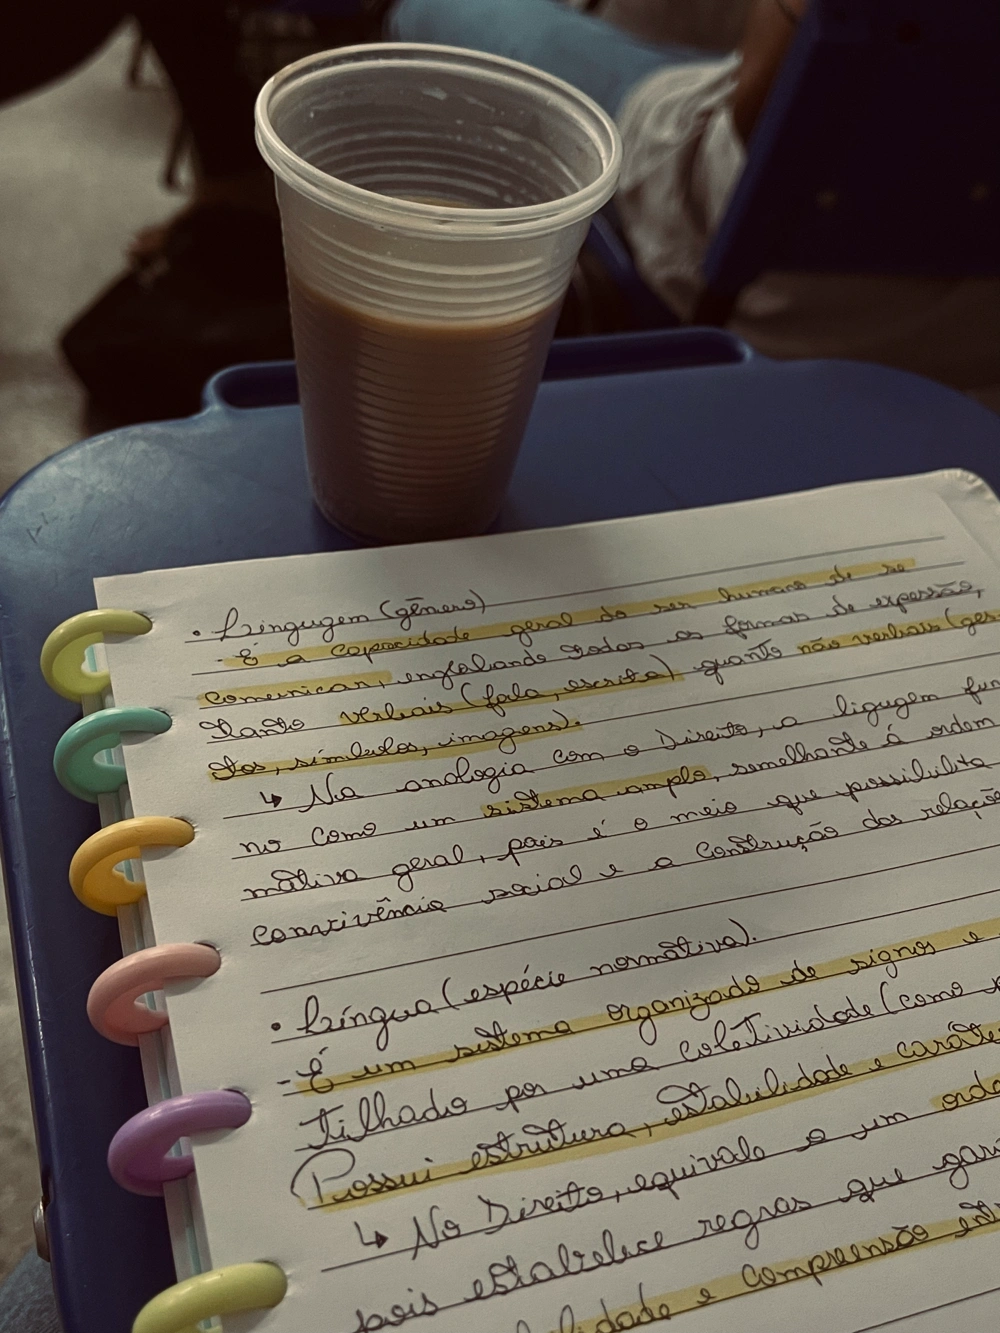 • Linguagem (gênero)
- É a capacidade geral do ser humano de se
comunicar, englobando todas as formas de expressão,
tanto verbais (fala, escrita) quanto não verbais (ges
tos, símbolos, imagens).
↳ Na analogia com o Direito, a liguagem fun
no como um sistema amplo, semelhante á ordem
mativa geral, pois é o meio que possibilita
convivência social e a construção das relaçõe
• Língua (espécie normativa).
- É um sistema organizado de signos e
tilhado por uma coletividade (como
Possui estrutura, estabilidade e caráte
↳ No Direito, equivale a um orde
pois estabelece regras que gara
lidade e compreensão